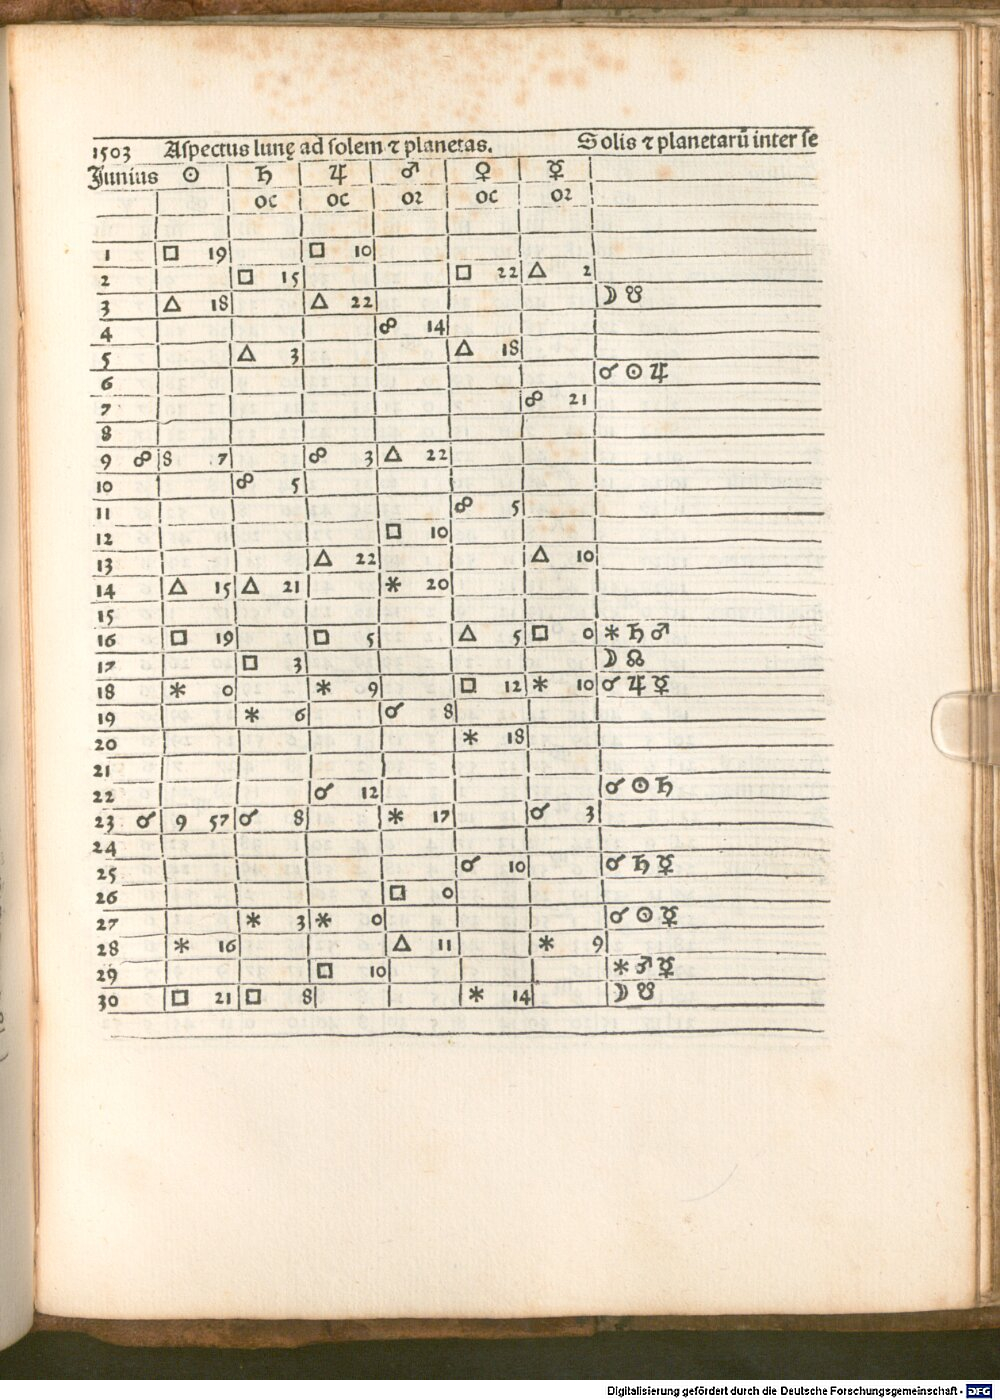 1503 Aſpectus lunę ad ſolem ⁊ planetas. Solis ⁊ planetarū inter ſe
Junius ☉ ♄ ♃ ♂ ♀ ☿
oc oc oꝛ oc oꝛ
1 □ 19 □ 10
2 □ 15 □ 22 △ 2
3 △ 18 △ 22 ☽ ☋
4 ☍ 14
5 △ 3 △ 18
6 ☌ ☉ ♃
7 ☍ 21
8
9 ☍ 8 7 ☍ 3 △ 22
10 ☍ 5
11 ☍ 5
12 □ 10
13 △ 22 △ 10
14 △ 15 △ 21 ⚹ 20
15
16 □ 19 □ 5 △ 5 □ 0 ⚹ ♄ ♂
17 □ 3 ☽ ☊
18 ⚹ 0 ⚹ 9 □ 12 ⚹ 10 ☌ ♃ ☿
19 ⚹ 6 ☌ 8
20 ⚹ 18
21
22 ☌ 12 ☌ ☉ ♄
23 ☌ 9 57 ☌ 8 ⚹ 17 ☌ 3
24
25 ☌ 10 ☌ ♄ ☿
26 □ 0
27 ⚹ 3 ⚹ 0 ☌ ☉ ☿
28 ⚹ 16 △ 11 ⚹ 9
29 □ 10 ⚹ ♂ ☿
30 □ 21 □ 8 ⚹ 14 ☽ ☋
Digitalisierung gefördert durch die Deutsche Forschungsgemeinschaft - DFG